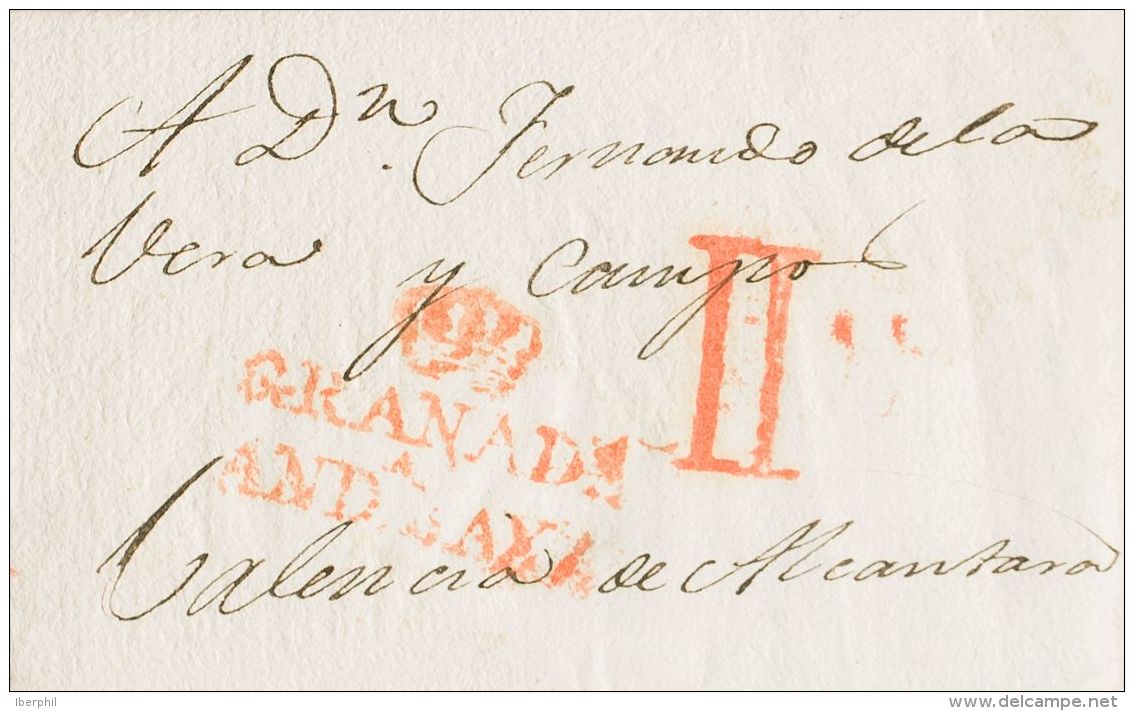 A Dn. Fernando de la
Vera y Campo
II
GRANADA
ANDA BAXA
Valencia de Alcantara
Iberphil
delcampe.net